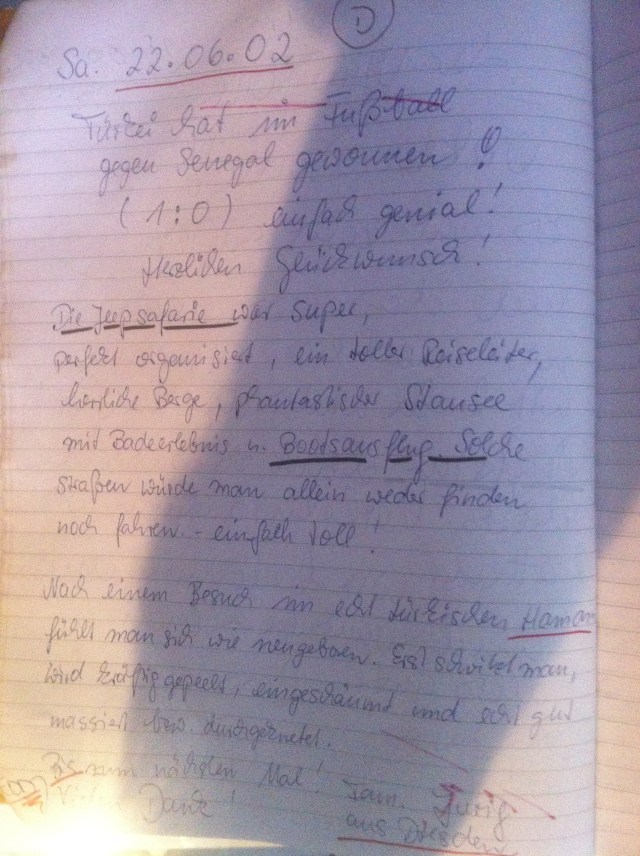 D
Sa. 22.06.02
Türkei hat im Fußball
gegen Senegal gewonnen!
(1:0) einfach genial!
Herzlichen Glückwunsch!
Die Jeepsafarie war super,
perfekt organisiert, ein toller Reiseleiter,
herrliche Berge, phantastischer Stausee
mit Badeerlebnis u. Bootsausflug Solche
Straßen würde man allein weder finden
noch fahren. - einfach toll!
Nach einem Besuch im echt türkischen Hamam
fühlt man sich wie neugeboren. Erst schwitzt man,
wird kräftig gepeelt, eingeschäumt und echt gut
massiert bzw. durchgeknetet.
Bis zum nächsten Mal!
Vielen Dank! Fam.
aus Dresden